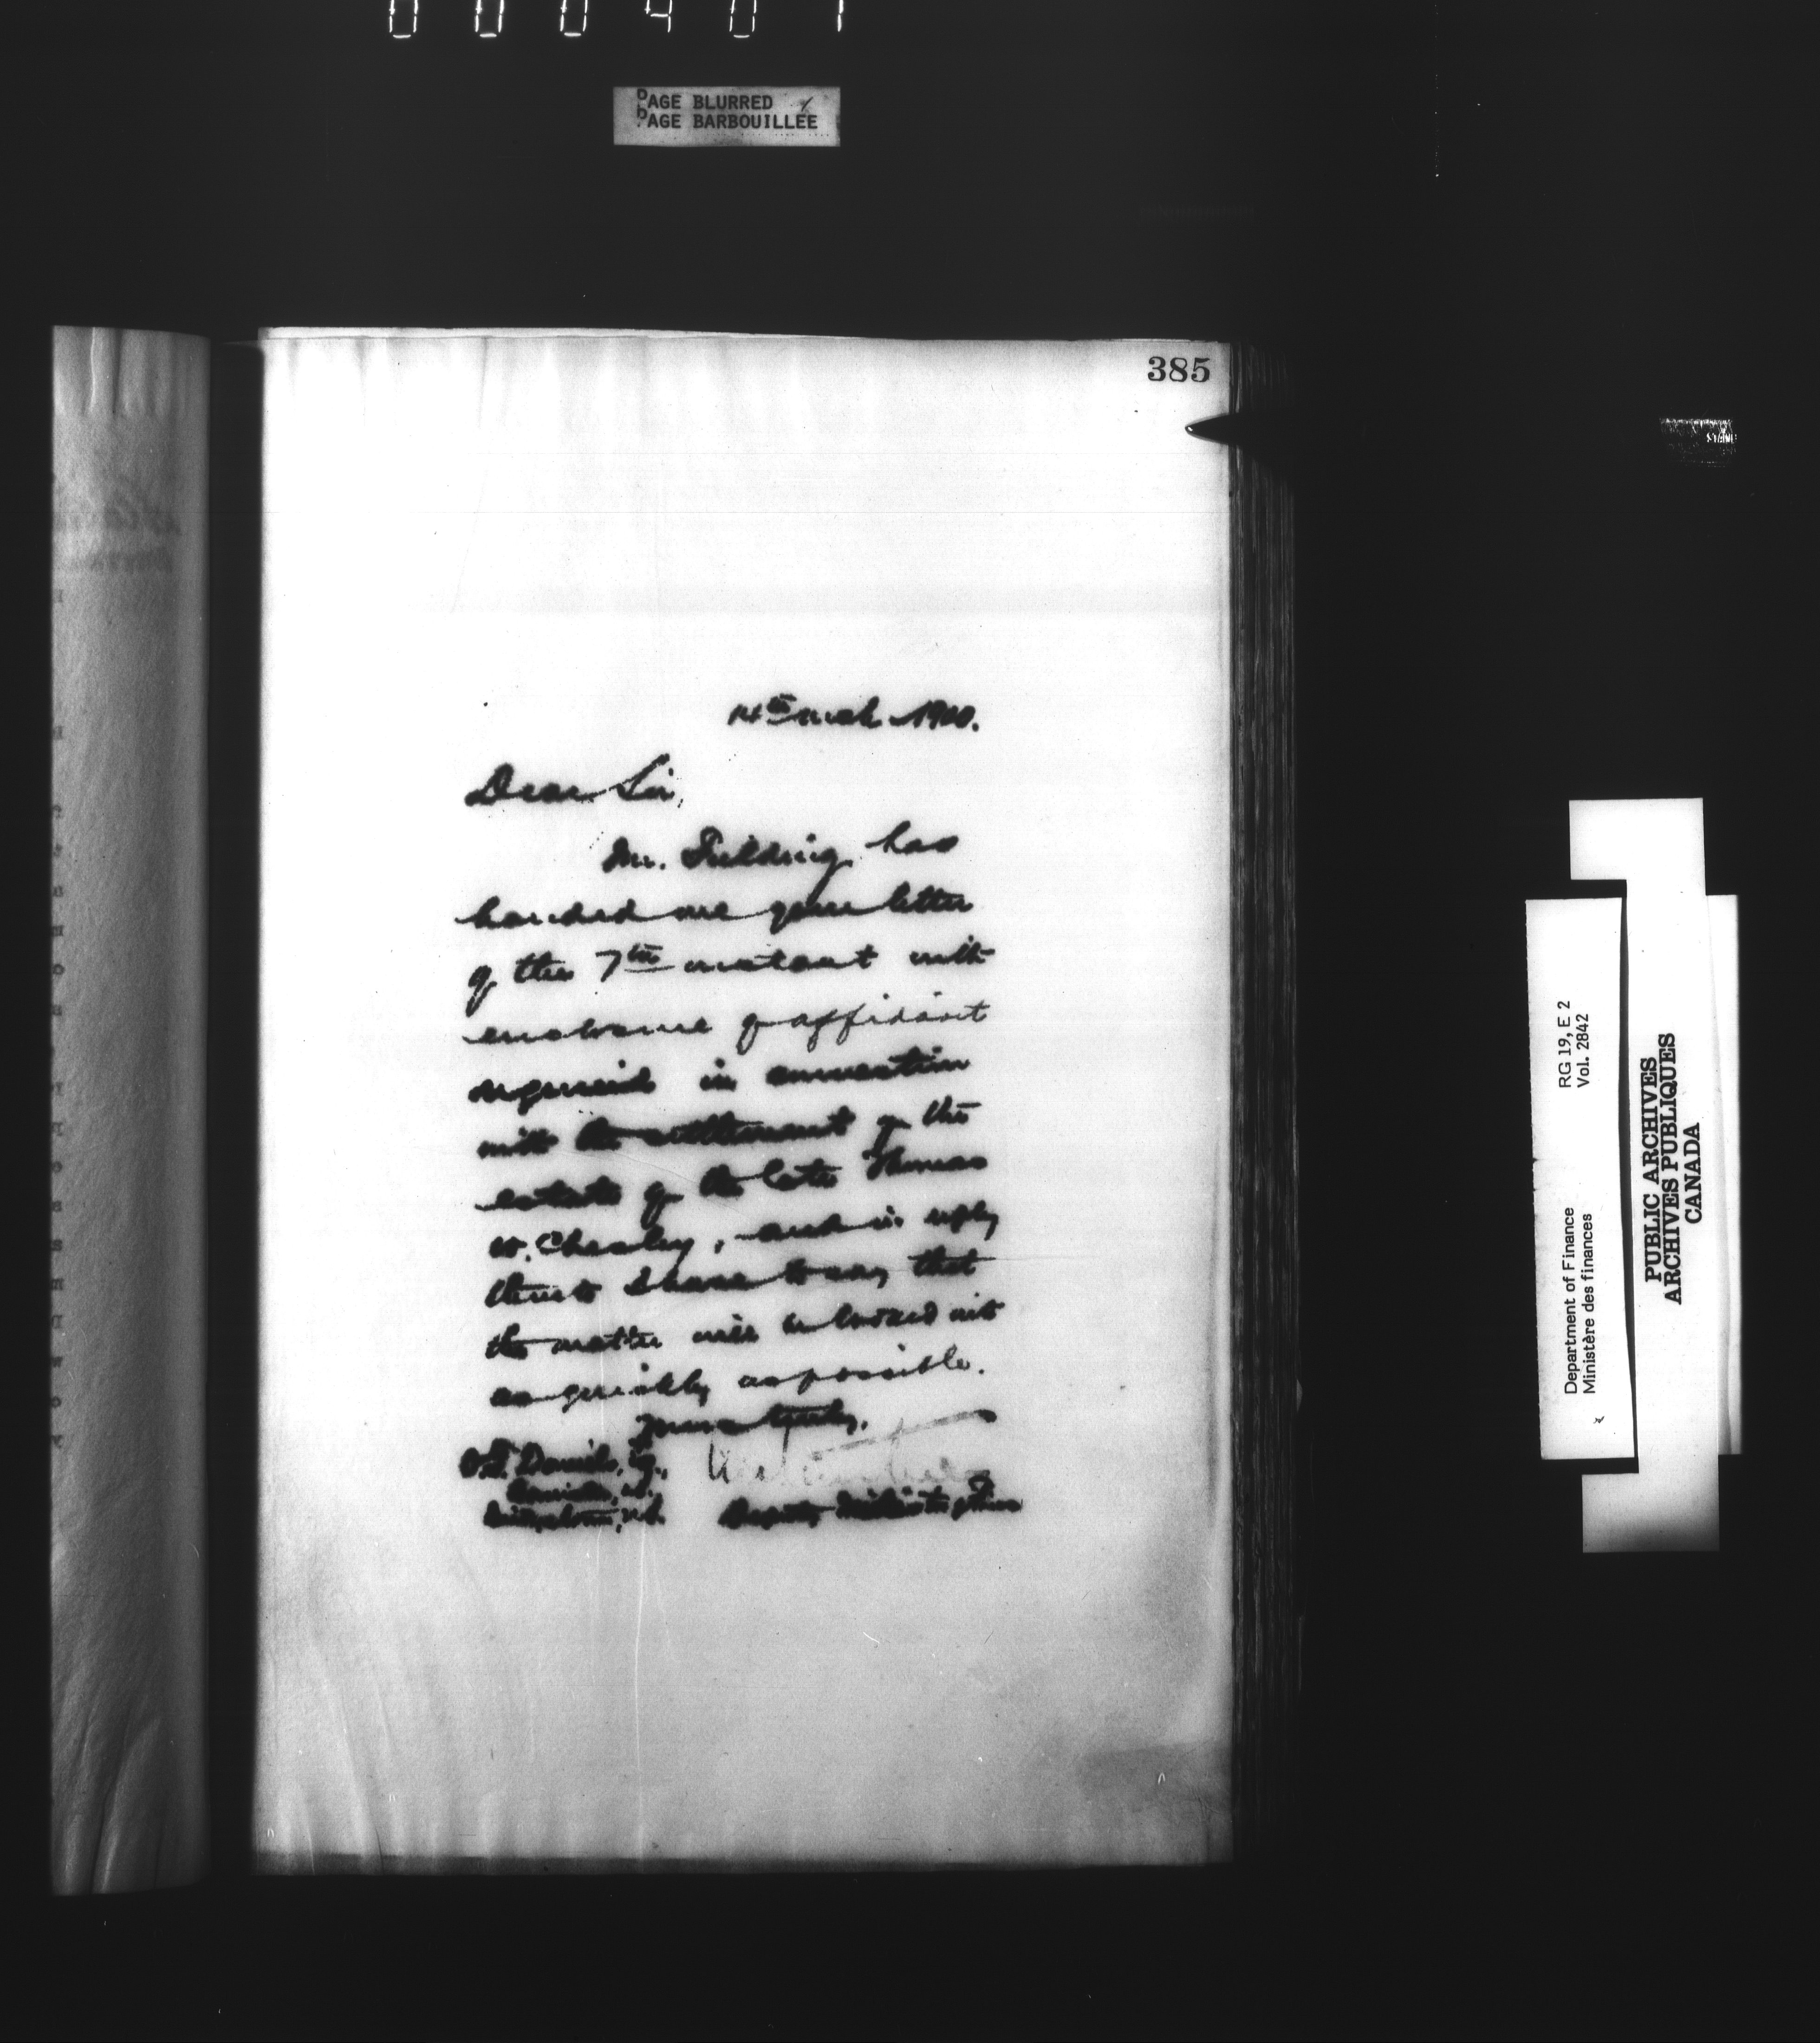 PAGE BLURRED
PAGE BARBOUILLÉE
385
14th Mch 1900.
Dear Sir,
Mr. Fielding has
handed me your letter
of the 7th instant with
enclosure of affidavit
required in connection
with the settlement of the
estate of the late Thomas
W. Chesley, and in reply
thereto I have to say that
the matter will be looked into
as quickly as possible.
Yours truly,
O.T. Daniels, Esq.,
Barrister, &c.
Bridgetown, N.S.
Deputy Minister of Finance
RG 19, E 2
Vol. 2842
Department of Finance
Ministère des finances
PUBLIC ARCHIVES
ARCHIVES PUBLIQUES
CANADA